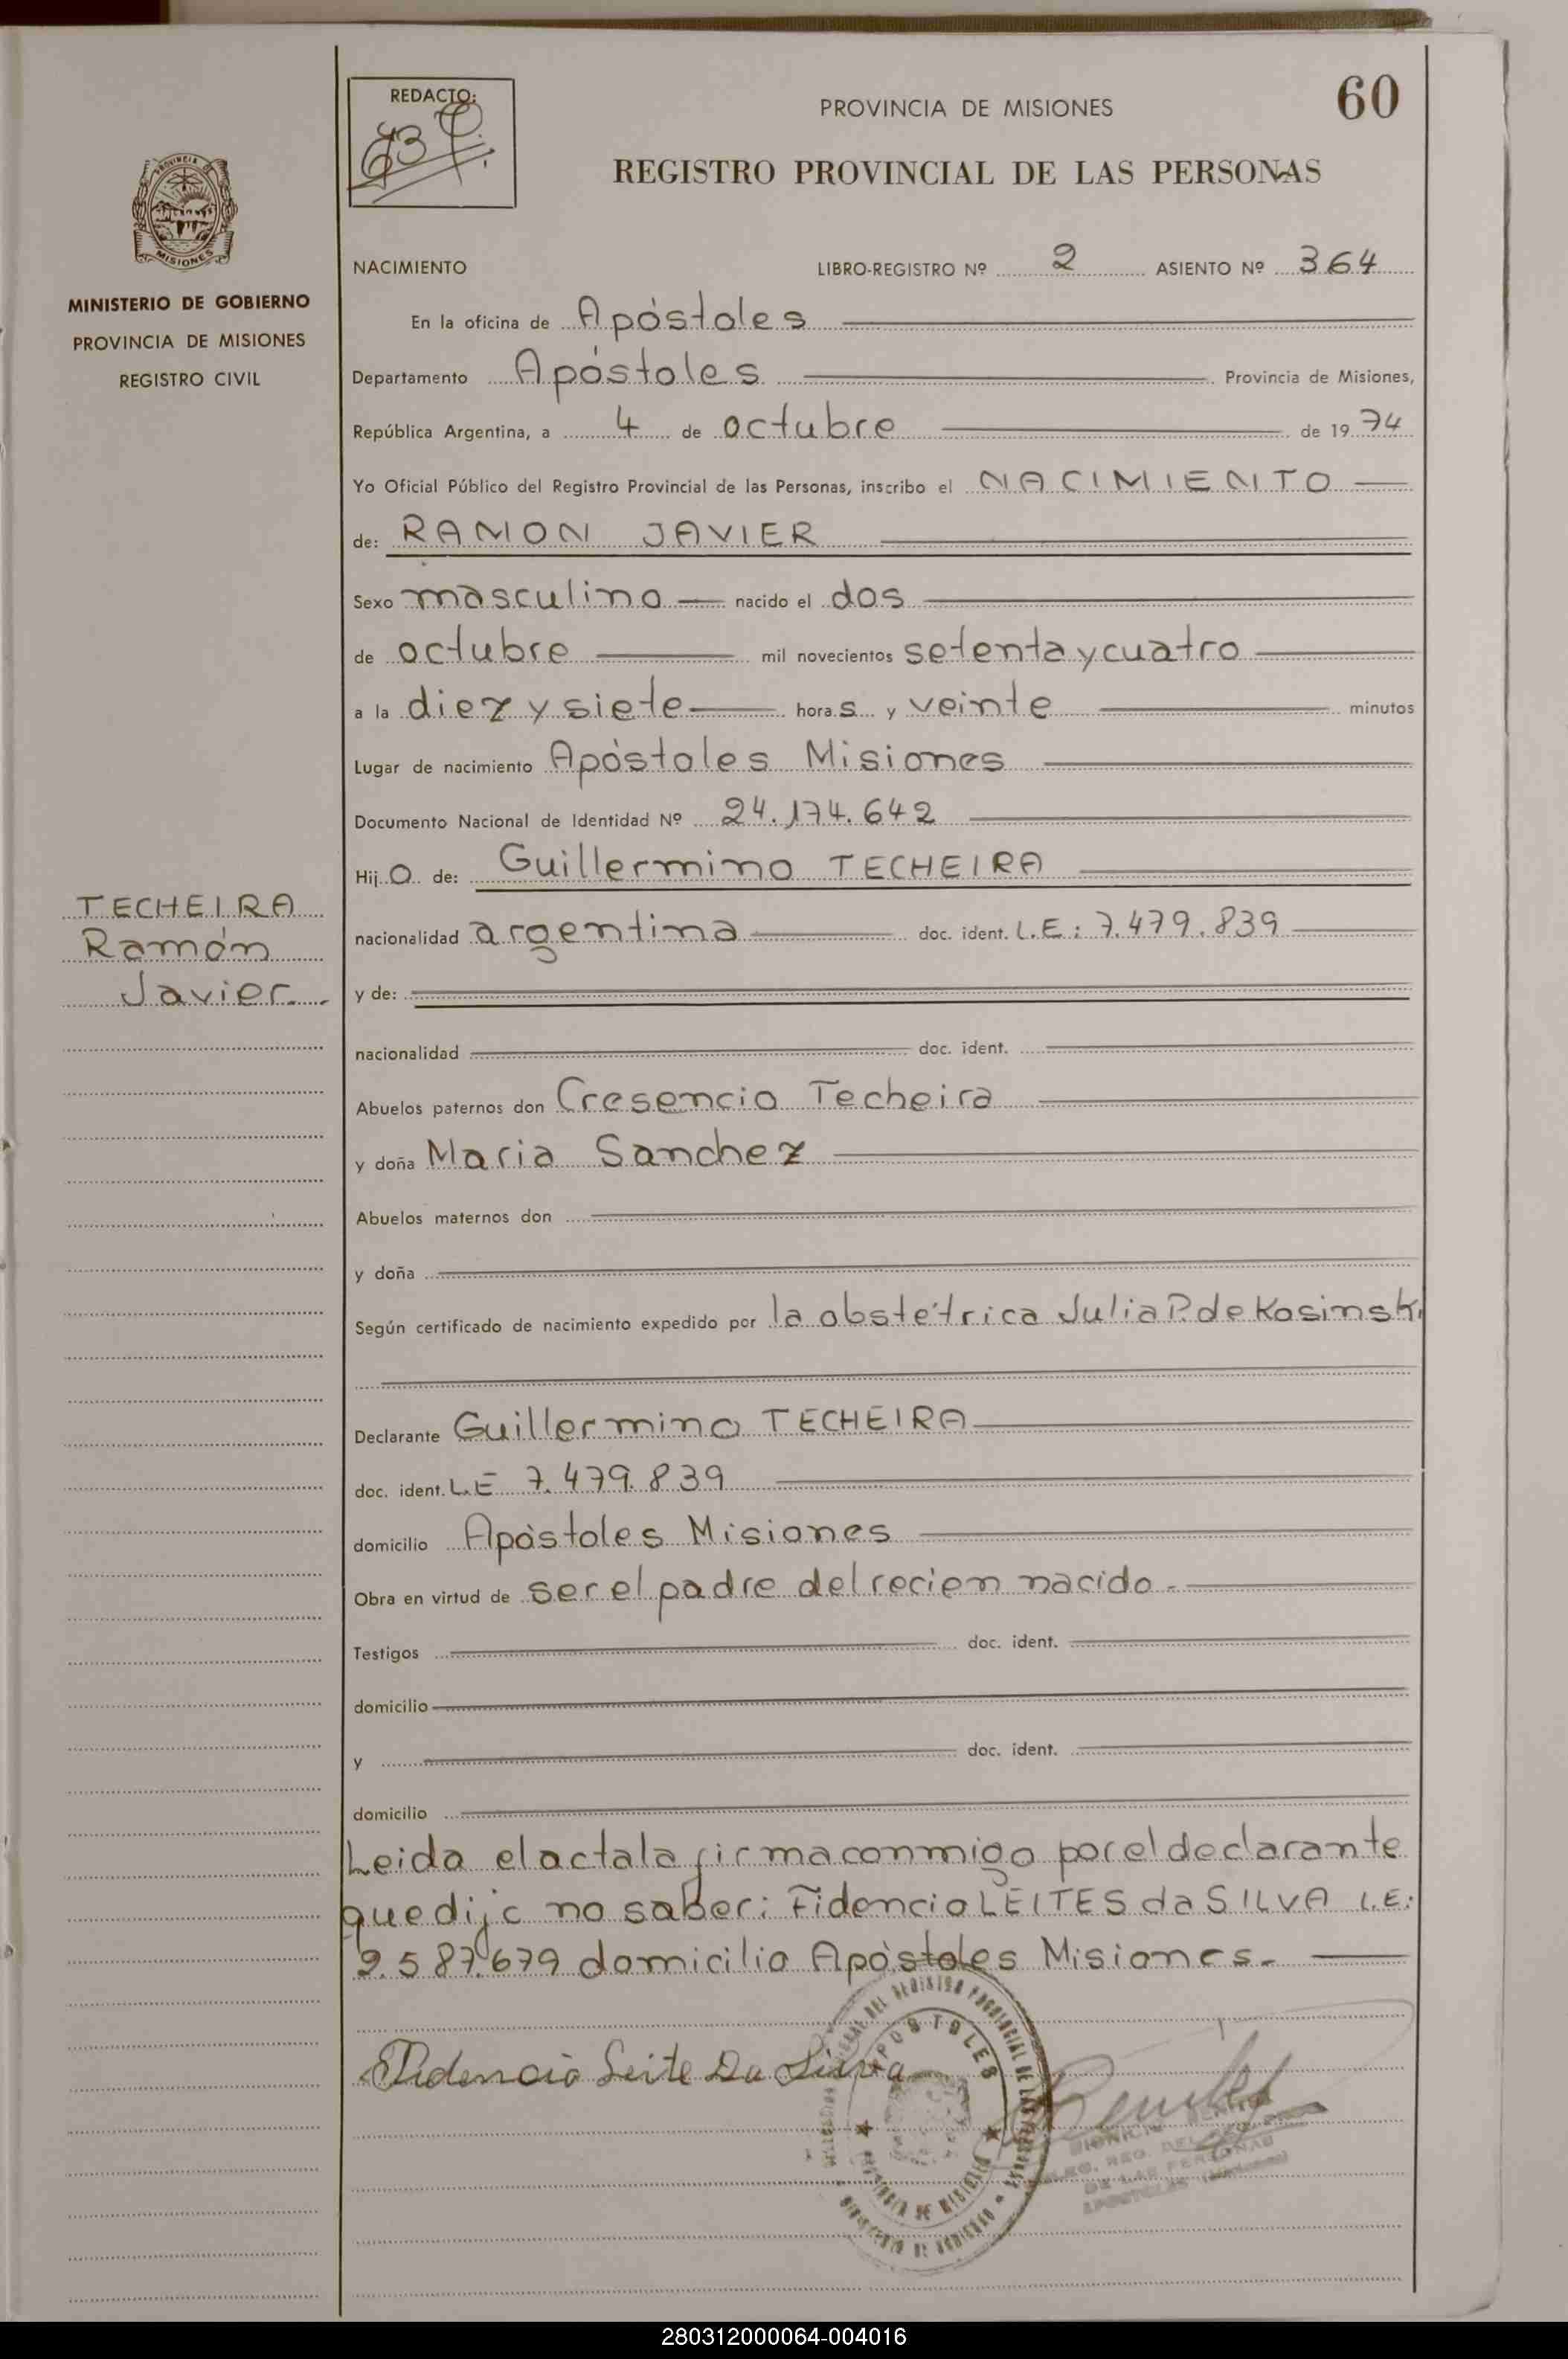 REDACTO:
PROVINCIA DE MISIONES
60
REGISTRO PROVINCIAL DE LAS PERSONAS
PROVINCIA DE
MISIONES
MINISTERIO DE GOBIERNO
PROVINCIA DE MISIONES
REGISTRO CIVIL
NACIMIENTO LIBRO-REGISTRO Nº 2 ASIENTO Nº 364
En la oficina de Apóstoles
Departamento Apóstoles Provincia de Misiones,
República Argentina, a 4 de octubre de 1974
Yo Oficial Público del Registro Provincial de las Personas, inscribo el NACIMIENTO
de: RAMON JAVIER
Sexo masculino nacido el dos
de octubre mil novecientos setenta y cuatro
a la diez y siete horas y veinte minutos
Lugar de nacimiento Apóstoles Misiones
Documento Nacional de Identidad Nº 24.174.642
Hijo de: Guillermino TECHEIRA
TECHEIRA
Ramón
Javier.
nacionalidad argentina doc. ident. L.E: 7.479.839
y de:
nacionalidad doc. ident.
Abuelos paternos don Cresencio Techeira
y doña Maria Sanchez
Abuelos maternos don
y doña
Según certificado de nacimiento expedido por la obstétrica Julia P. de Kosinski
Declarante Guillermino TECHEIRA
doc. ident. L.E 7.479.839
domicilio Apóstoles Misiones
Obra en virtud de ser el padre del recien nacido.
Testigos doc. ident.
domicilio
y doc. ident.
domicilio
Leida el acta la firma conmigo por el declarante
que dijo no saber: Fidencio LEITES da SILVA L.E:
9.587.679 domicilio Apóstoles Misiones.
Fidencio Leite Da Silva
APOSTOLES
DEL REGISTRO PROVINCIAL DE LAS PERSONAS
PROVINCIA DE MISIONES
MINISTERIO DE GOBIERNO
REG. DEL REG.
DE LAS PERSONAS
APOSTOLES (Misiones)
280312000064-004016